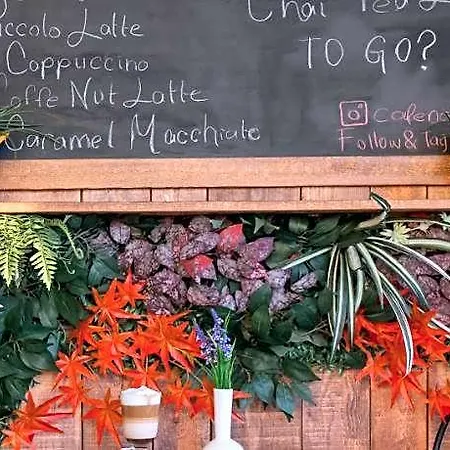 Piccolo Latte
Cappuccino
Toffee Nut Latte
Caramel Macchiato
Chai Tea
TO GO?
Follow & Tag